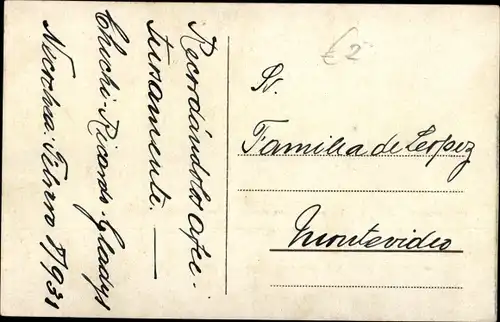 Recordándolos afec-
tuosamente. —
Chichi-Ricardo-Gladys
Necochea. Febrero 8/931
£2
Sr.
Familia de Lopez
Montevideo